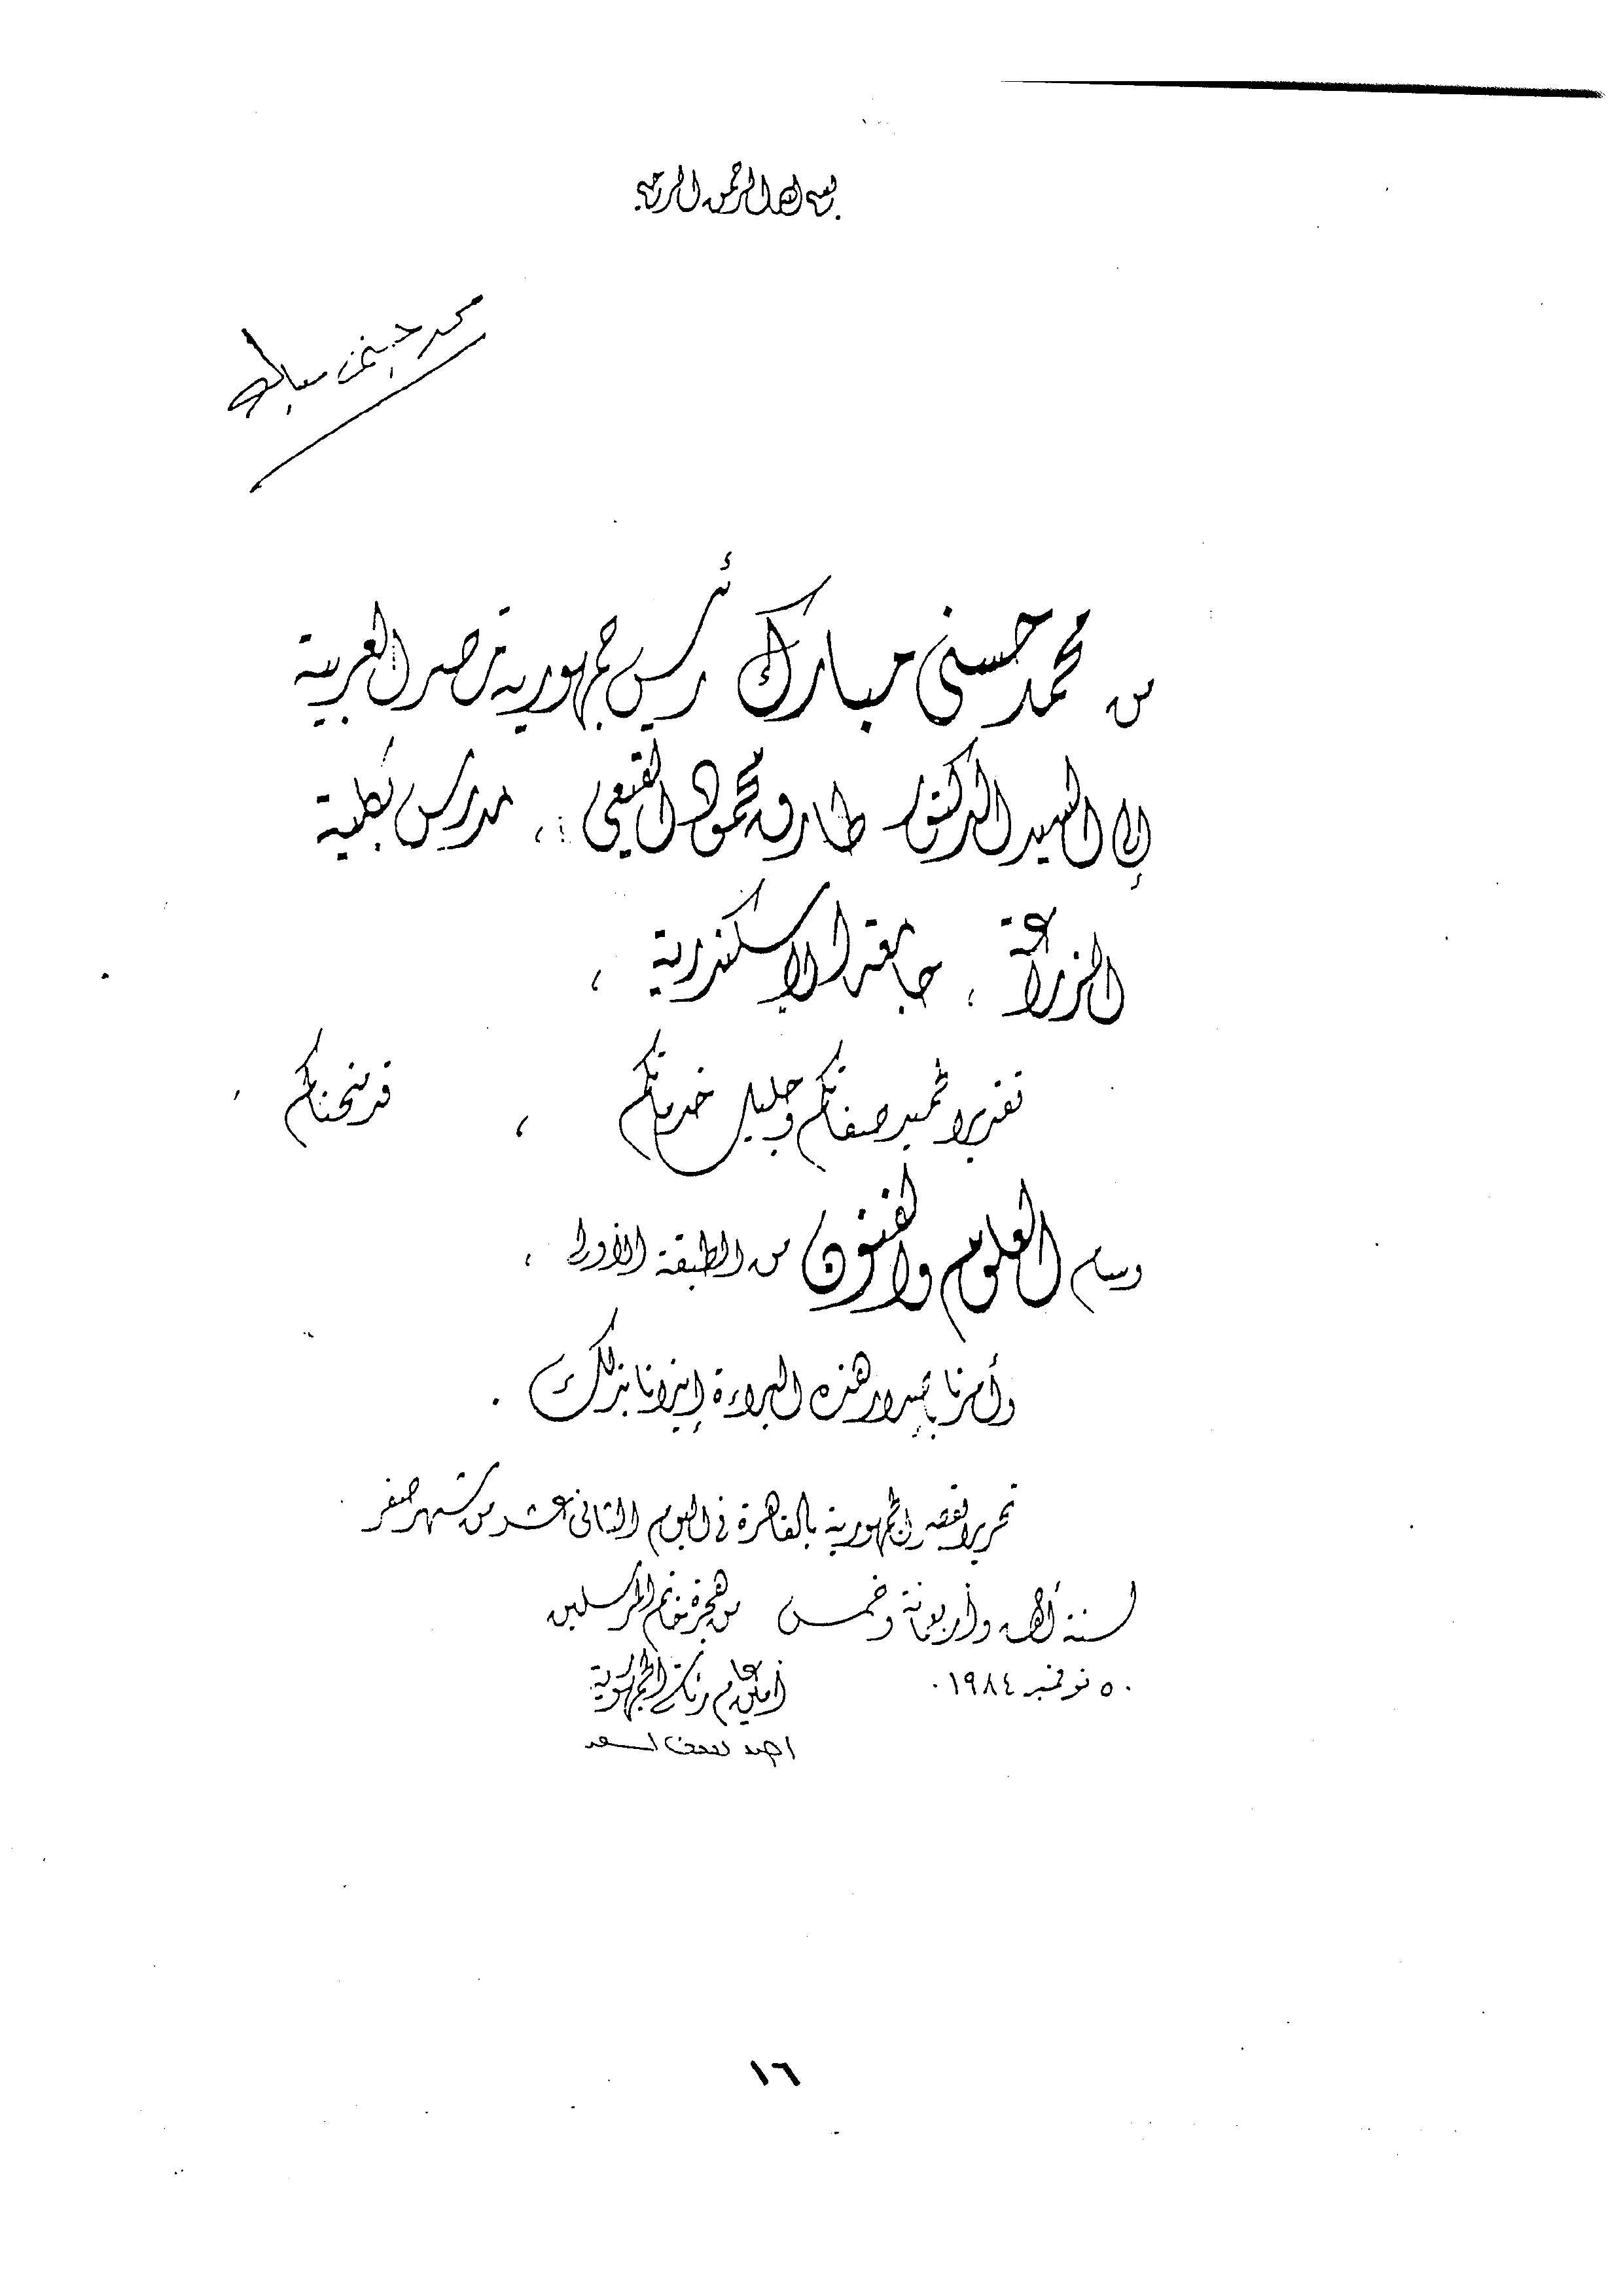 بسم الله الرحمن الرحيم
محمد حسنى مبارك
من محمد حسنى مبارك رئيس جمهورية مصر العربية
إلى السيد الدكتور طارق محمود القيعى ، مدرس بكلية
الزراعة ، جامعة الإسكندرية ،
تقديرا لحميد صفاتكم وجليل خدماتكم ، قد منحناكم ،
وسام العلوم والفنون من الطبقة الأولى ،
وأمرنا بإصدار هذه البراءة إيذانا بذلك .
تحريرا بقصر الجمهورية بالقاهرة فى اليوم الثانى عشر من شهر صفر
لسنة ألف وأربعمائة وخمس من هجرة خاتم المرسلين
٥ نوفمبر ١٩٨٤ . أمين عام رئاسة الجمهورية
احمد
١٦